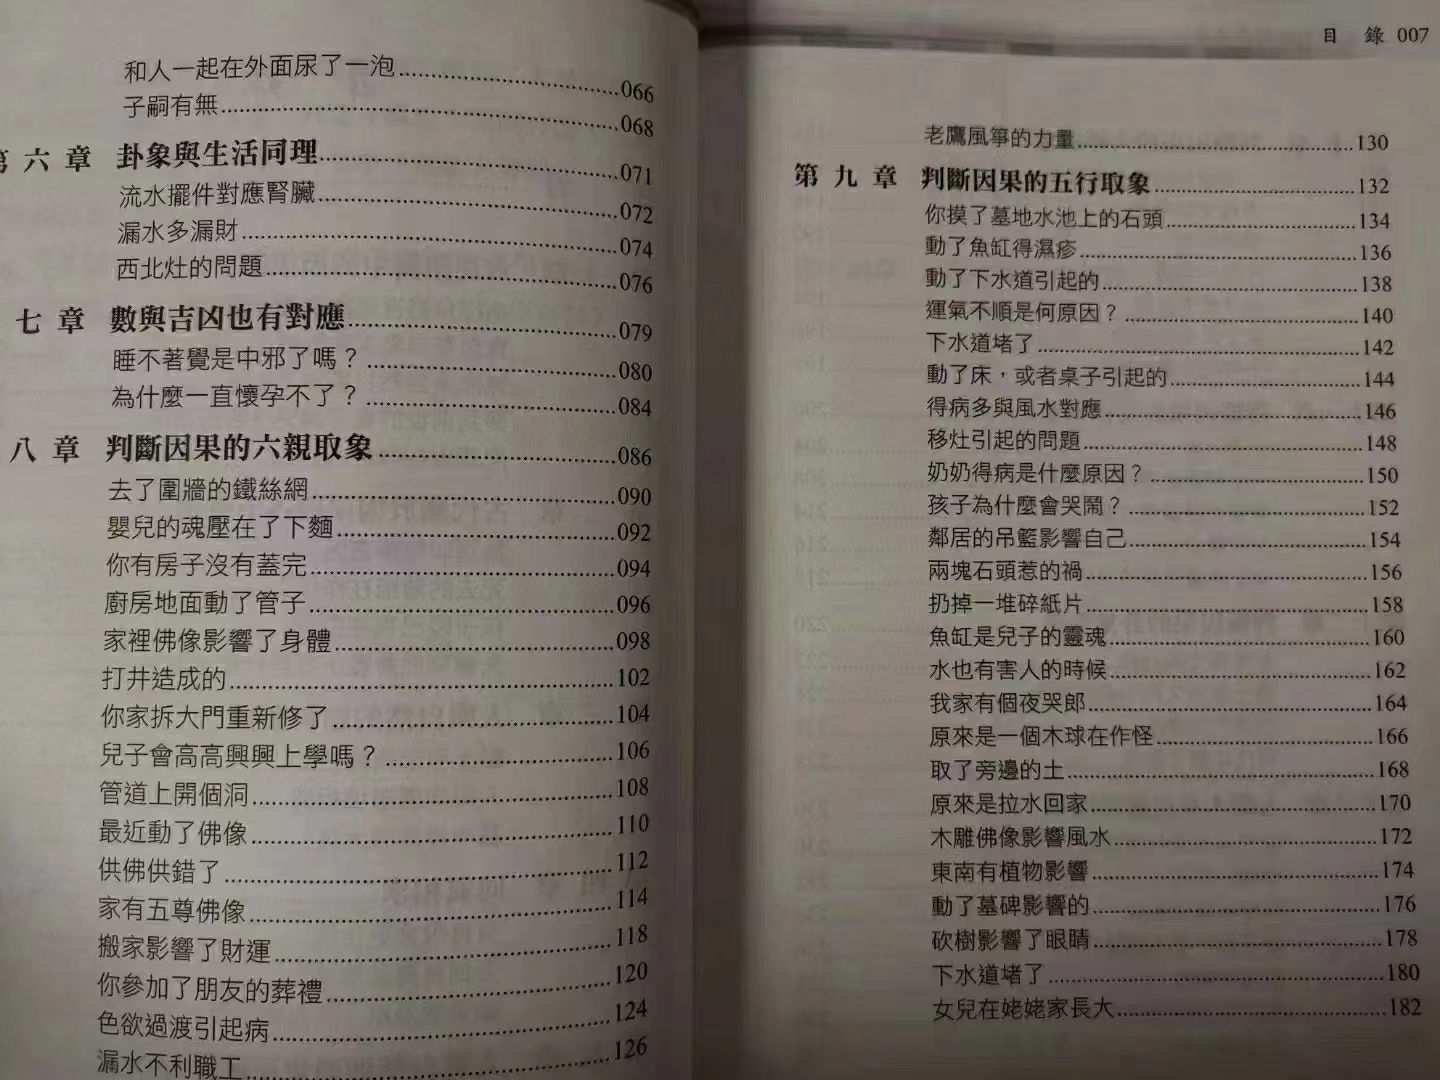 和人一起在外面尿了一泡 066
子嗣有無 068
第六章 卦象與生活同理 071
流水擺件對應腎臟 072
漏水多漏財 074
西北灶的問題 076
七章 數與吉凶也有對應 079
睡不著覺是中邪了嗎？ 080
為什麼一直懷孕不了？ 084
八章 判斷因果的六親取象 086
去了圍牆的鐵絲網 090
嬰兒的魂壓在了下麵 092
你有房子沒有蓋完 094
廚房地面動了管子 096
家裡佛像影響了身體 098
打井造成的 102
你家拆大門重新修了 104
兒子會高高興興上學嗎？ 106
管道上開個洞 108
最近動了佛像 110
供佛供錯了 112
家有五尊佛像 114
搬家影響了財運 118
你參加了朋友的葬禮 120
色欲過渡引起病 124
漏水不利職工 126
目錄 007
老鷹風箏的力量 130
第九章 判斷因果的五行取象 132
你摸了墓地水池上的石頭 134
動了魚缸得濕疹 136
動了下水道引起的 138
運氣不順是何原因？ 140
下水道堵了 142
動了床，或者桌子引起的 144
得病多與風水對應 146
移灶引起的問題 148
奶奶得病是什麼原因？ 150
孩子為什麼會哭鬧？ 152
鄰居的吊籃影響自己 154
兩塊石頭惹的禍 156
扔掉一堆碎紙片 158
魚缸是兒子的靈魂 160
水也有害人的時候 162
我家有個夜哭郎 164
原來是一個木球在作怪 166
取了旁邊的土 168
原來是拉水回家 170
木雕佛像影響風水 172
東南有植物影響 174
動了墓碑影響的 176
砍樹影響了眼睛 178
下水道堵了 180
女兒在姥姥家長大 182